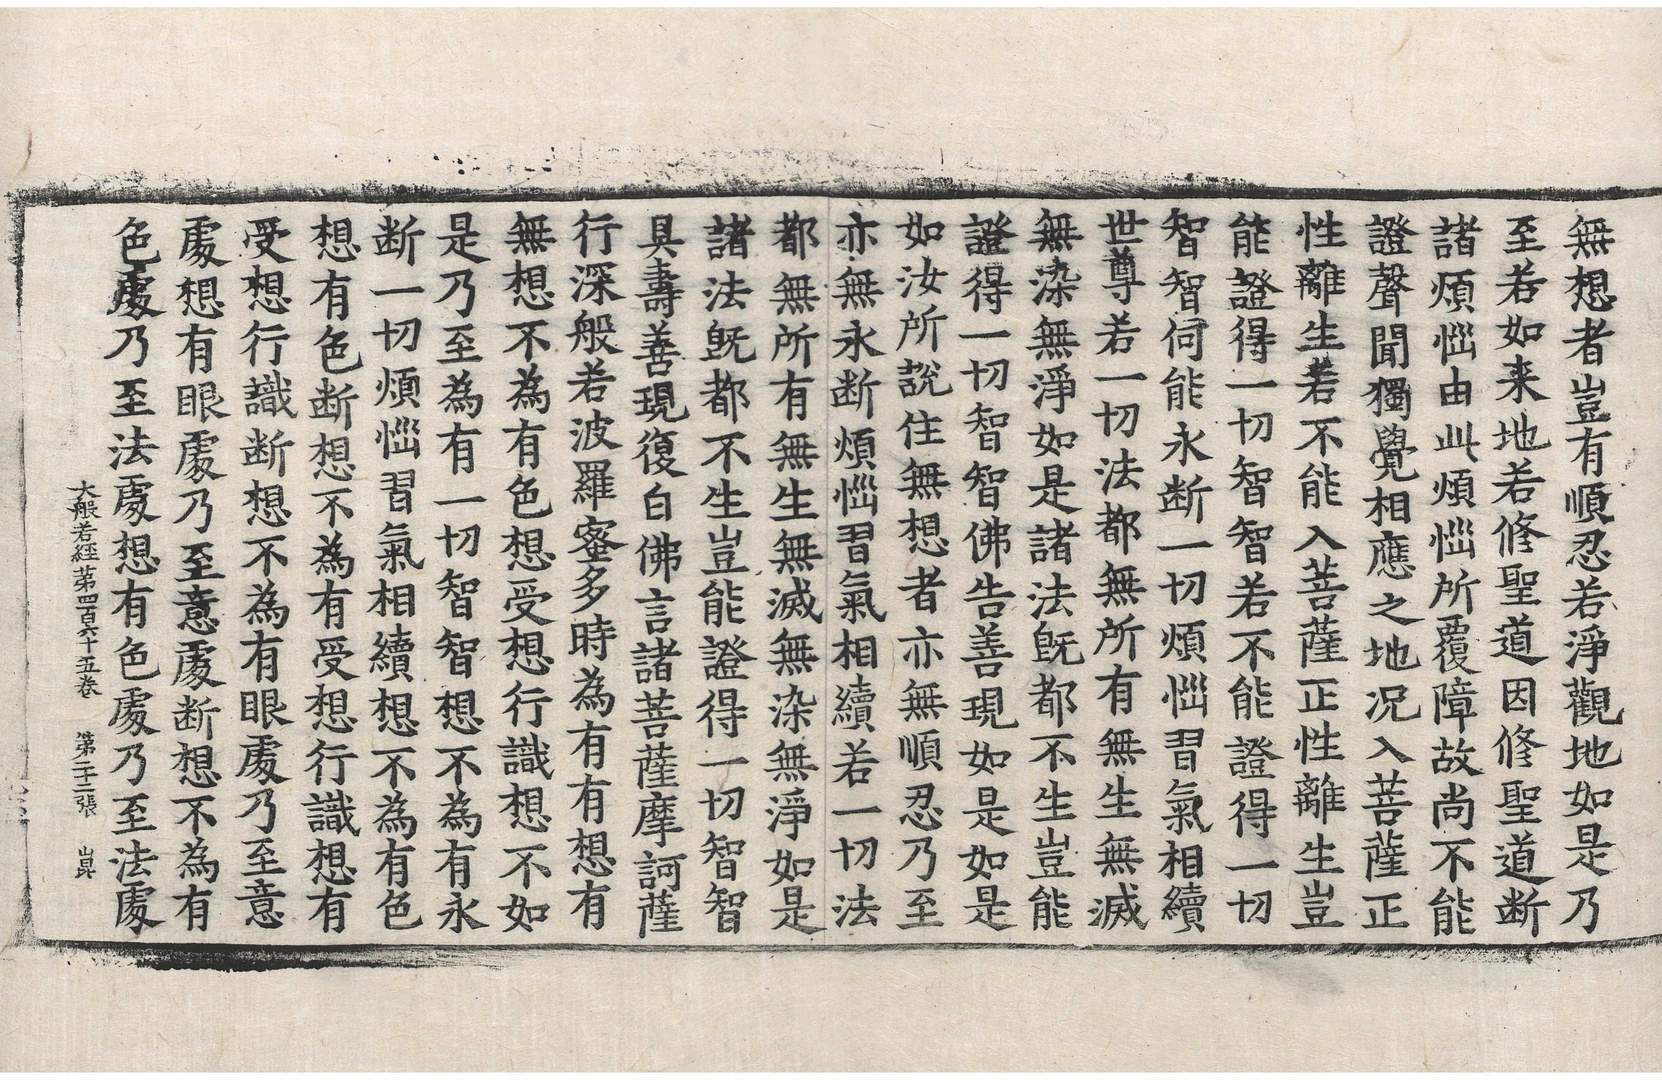 無想者豈有順忍若淨觀地如是乃
至若如来地若修聖道因修聖道断
諸煩惱由此煩惱所覆障故尚不能
證聲聞獨覺相應之地况入菩薩正
性離生若不能入菩薩正性離生豈
能證得一切智智若不能證得一切
智智何能永断一切煩惱習氣相續
世尊若一切法都無所有無生無滅
無染無淨如是諸法旣都不生豈能
證得一切智智佛告善現如是如是
如汝所說住無想者亦無順忍乃至
亦無永断煩惱習氣相續若一切法
都無所有無生無滅無染無淨如是
諸法旣都不生豈能證得一切智智
具壽善現復白佛言諸菩薩摩訶薩
行深般若波羅蜜多時為有有想有
無想不為有色想受想行識想不如
是乃至為有一切智智想不為有永
断一切煩惱習氣相續想不為有色
想有色断想不為有受想行識想有
受想行識断想不為有眼處乃至意
處想有眼處乃至意處断想不為有
色處乃至法處想有色處乃至法處
大般若經第四百六十五卷 第二十二張